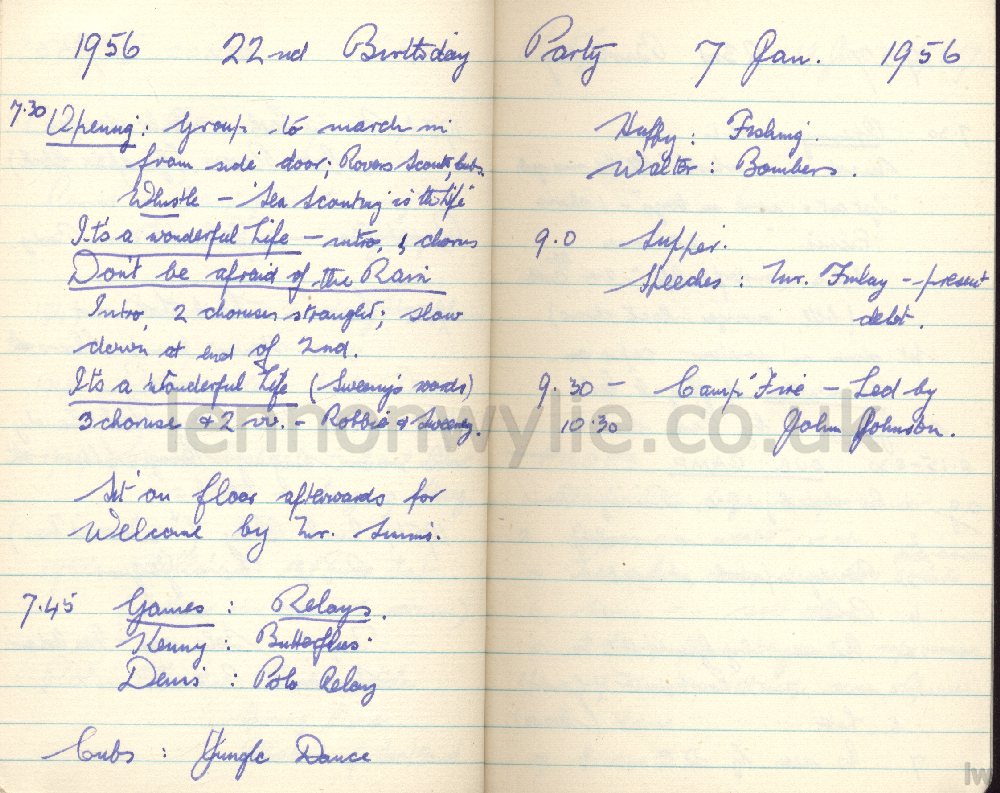 1956 22nd Birthday Party 7 Jan. 1956
7.30 Opening: Group to march in
from side door; Rovers Scouts, Cubs.
Whistle - "Sea Scouting is the life"
It's a wonderful Life - intro, & chorus
Don't be afraid of the Rain
Intro, 2 choruses straight; slow
down at end of 2nd.
It's a Wonderful Life (Sweeny's words)
3 choruse & 2 vv. - Robbie & Sweeney.
Sit on floor afterwards for
Welcome by Mr. Simms.
7.45 Games: Relays.
Kenny: Butterflies.
Denis: Polo Relay
Cubs: Jungle Dance
Huffy: Fishing.
Walter: Bombers.
9.0 Supper.
Speeches: Mr. Finlay - present
debt.
9.30 - Camp Fire - Led by
10.30 John Johnston.
lennonwylie.co.uk
lw